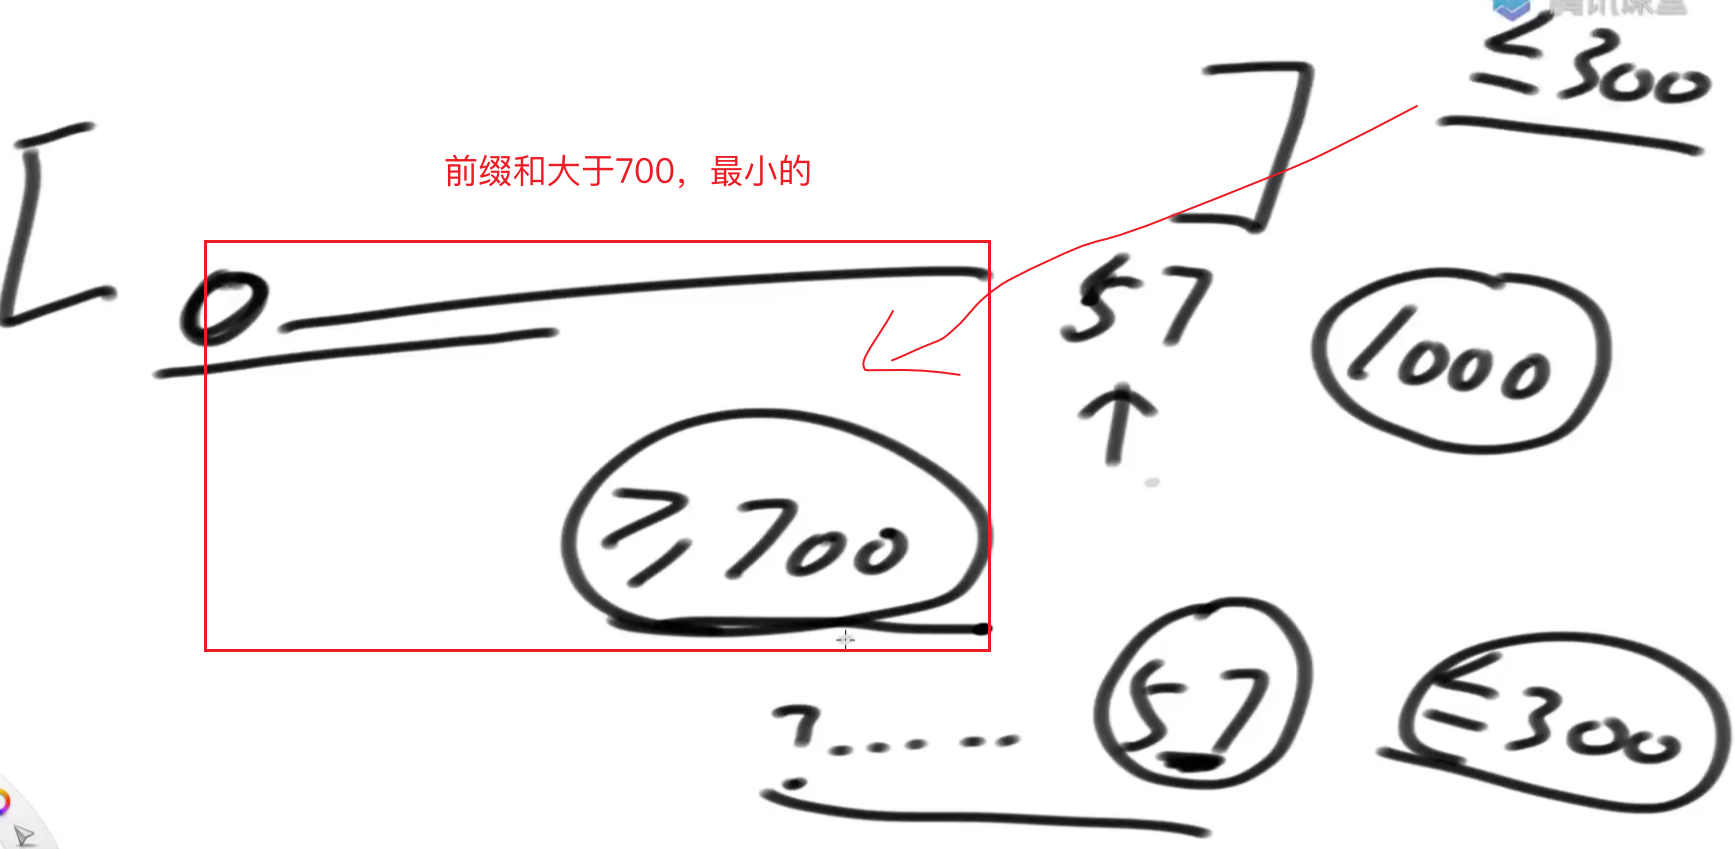 腾讯课堂
≤300
前缀和大于700，最小的
0
57
1000
≥700
?......
57
≤300